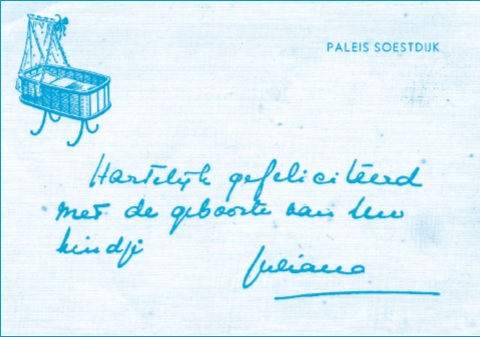 PALEIS SOESTDIJK
Hartelijk gefeliciteerd
met de geboorte van Uw
kindje
Juliana